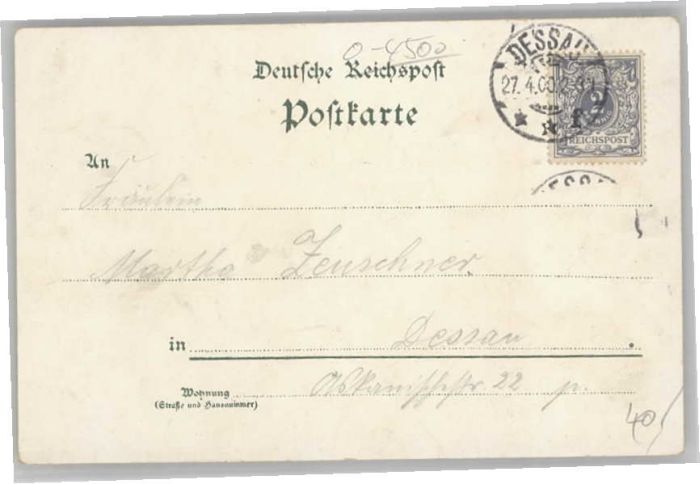 0-4500
DESSAU
27.4.00.2-3N
*
* f *
2
REICHSPOST
Deutsche Reichspost
Postkarte
An
Fräulein
Martha Zeuschner.
in Dessau.
Wohnung Askanischestr 22 p.
(Straße und Hausnummer)
40/